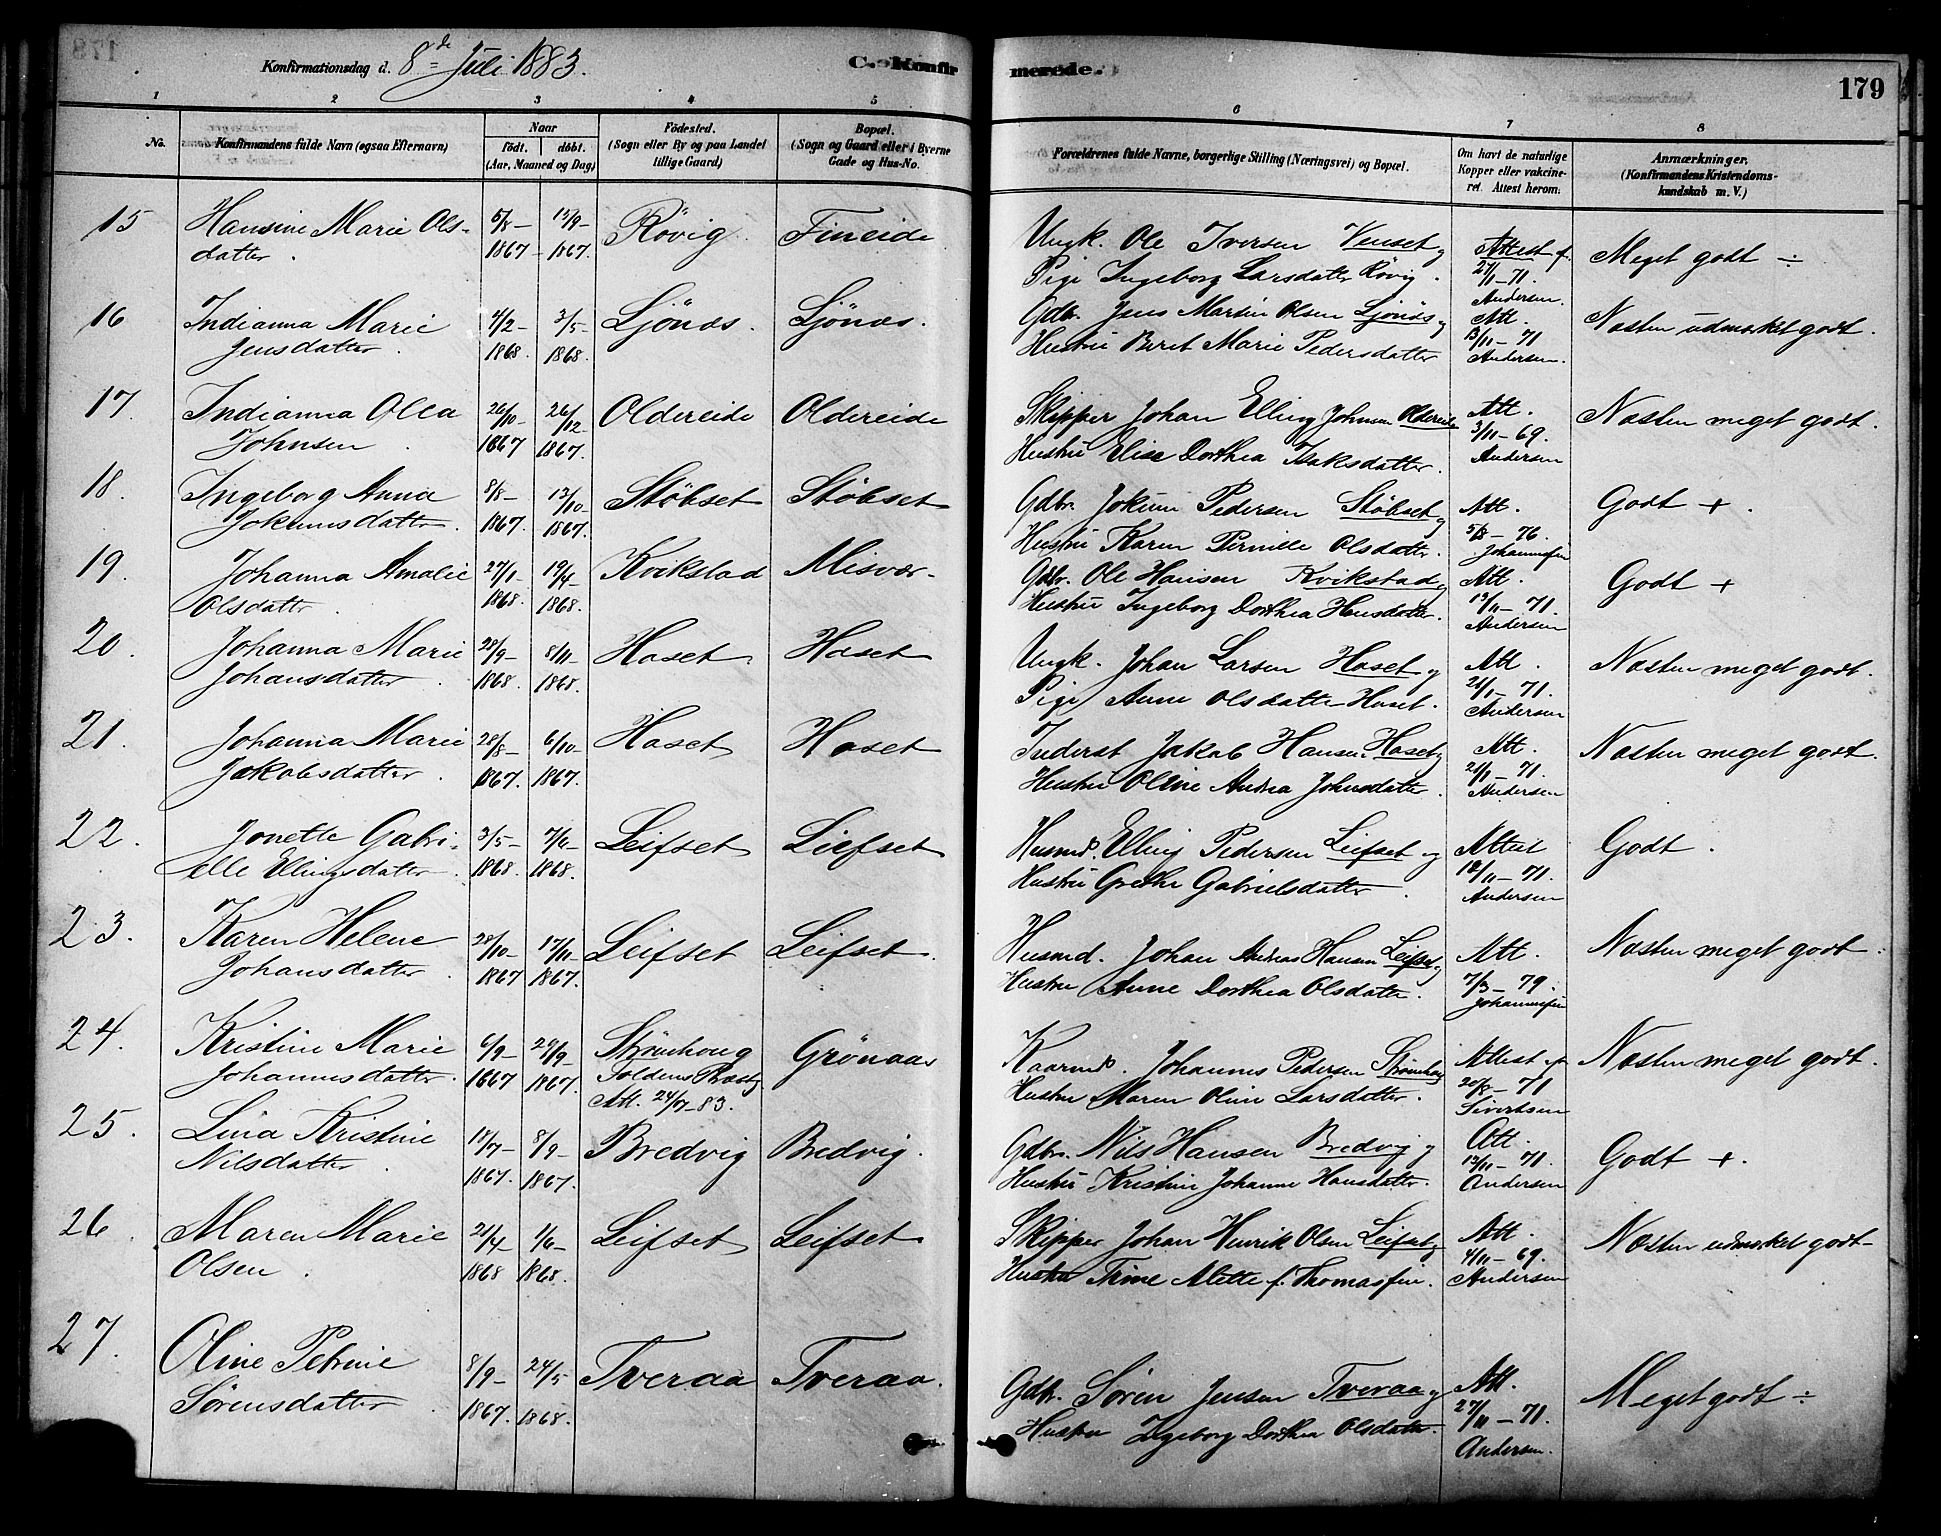 Konfirmationsdag d. 8de Juli 1883.
C. Konfirmerede.
179
1 2 3 4 5 6 7 8
No.
Konfirmandens fulde Navn (ogsaa Efternavn)
Naar
födt. döbt.
(Aar, Maaned og Dag)
Födested.
(Sogn eller By og paa Landet
tillige Gaard)
Bopæl.
(Sogn og Gaard eller i Byerne
Gade og Hus-No.
Forældrenes fulde Navne, borgerlige Stilling (Næringsvei) og Bopæl.
Om havt de naturlige
Kopper eller vakcine-
ret. Attest herom.
Anmærkninger.
(Konfirmandens Kristendoms-
kundskab m. V.)
15 Hansine Marie Ols- 5/8- 15/9- Rövig. Fineide Ungk. Ole Iversen Venset og Attest f. Meget godt ÷
datter. 1867 - 1867. Pige Ingeborg Larsdatter Røvig. 27/1-71. Andersen.
16 Indianna Marie 4/2- 3/5- Ljönes. Ljönes. Gdbr. Jens Martin Olsen Ljönes og Att. Næsten udmærket godt.
Jensdatter. 1868. 1868. Hustru Beret Marie Pedersdatter 13/11-71 Andersen.
17. Indianna Olea 26/10- 26/12- Oldereide Oldereide Skipper Johan Elling Johnsen Oldereide Att. Næsten meget godt.
Johnsen. 1867 1867. Hustru Elise Dorthea Isaksdatter. 3/11-69. Andersen
18. Ingeborg Anna 8/8- 13/10- Stöbset Stöbset Gdbr. Jokum Pedersen Støbset og Att. Godt +.
Jokumsdatter. 1867. 1867. Hustru Karen Pernille Olsdatter. 5/8-76. Johannesen
19. Johanna Amalie 27/1- 19/4- Kvikstad Misvær. Gdbr. Ole Hansen Kvikstad og Att. Godt +
Olsdatter. 1868. 1868. Hustru Ingeborg Dorthea Hansdatter. 13/11-71. Andersen
20. Johanna Marie 28/9- 8/11- Hoset Hoset Ungk. Johan Larsen Hoset og Att. Næsten meget godt.
Johansdatter. 1868. 1868. Pige Anne Olsdatter Hoset. 21/1-71. Andersen
21. Johanna Marie 28/8- 6/10- Hoset Hoset Inderst Jakob Hansen Hoset og Att. Næsten meget godt.
Jakobsdatter. 1867. 1867. Hustru Oline Andrea Johnsdatter. 21/1-71. Andersen
22. Jonette Gabri- 3/5- 7/6- Leifset Leifset Husmd. Elling Pedersen Leifset og Attest Godt.
elle Ellingsdatter. 1868. 1868. Hustru Grethe Gabrielsdatter. 12/11-71. Andersen
23. Karen Helene 28/10- 17/11- Leifset Leifset. Husmd. Johan Andreas Hansen Leifset og Att. Næsten meget godt.
Johansdatter. 1867 1867. Hustru Anne Dorthea Olsdatter. 7/3-79. Johannesen
24. Kristine Marie 6/9- 29/9- Strömhoug Grönaas Kaarmd. Johannes Pedersen Strømhoug Attest f. Næsten meget godt.
Johannesdatter. 1867 1867. Att. 24/7-83. Hustru Maren Oline Larsdatter. 20/8-71 Sivertsen
25. Lina Kristine 18/7- 8/9- Bredvig Bredvig. Gdbr. Nils Hansen Bredvig og Att. Godt +.
Nilsdatter. 1867. 1867. Hustru Kristine Johanne Hansdatter. 13/11-71. Andersen
26. Maren Marie 21/4- 1/6- Leifset Leifset Skipper Johan Henrik Olsen Leifset og Att. Næsten udmærket godt-
Olsen. 1868 1868. Hustru Trine Alette f. Thomassen. 4/11-69. Andersen
27. Oline Petrine 8/9- 24/5- Tveraa Tveraa. Gdbr. Sören Jensen Tveraa og Att. Meget godt ÷
Sörensdatter. 1867. 1868. Hustru Ingeborg Dorthea Olsdatter. 27/11-71. Andersen.